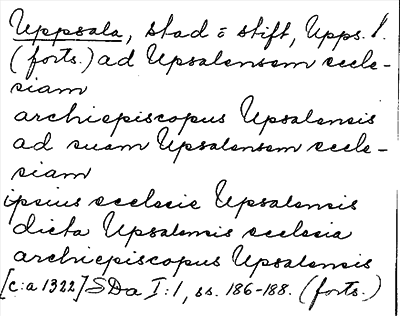 Uppsala, stad o stift, Upps. l.
(forts.) ad Upsalensem eccle-
siam
archiepiscopus Upsalensis
ad suam Upsalensem eccle-
siam
ipsius ecclesie Upsalensis
dicta Upsalensis ecclesia
archiepiscopus Upsalensis
[c:a 1322] SDa I:1, ss. 186-188. (forts.)